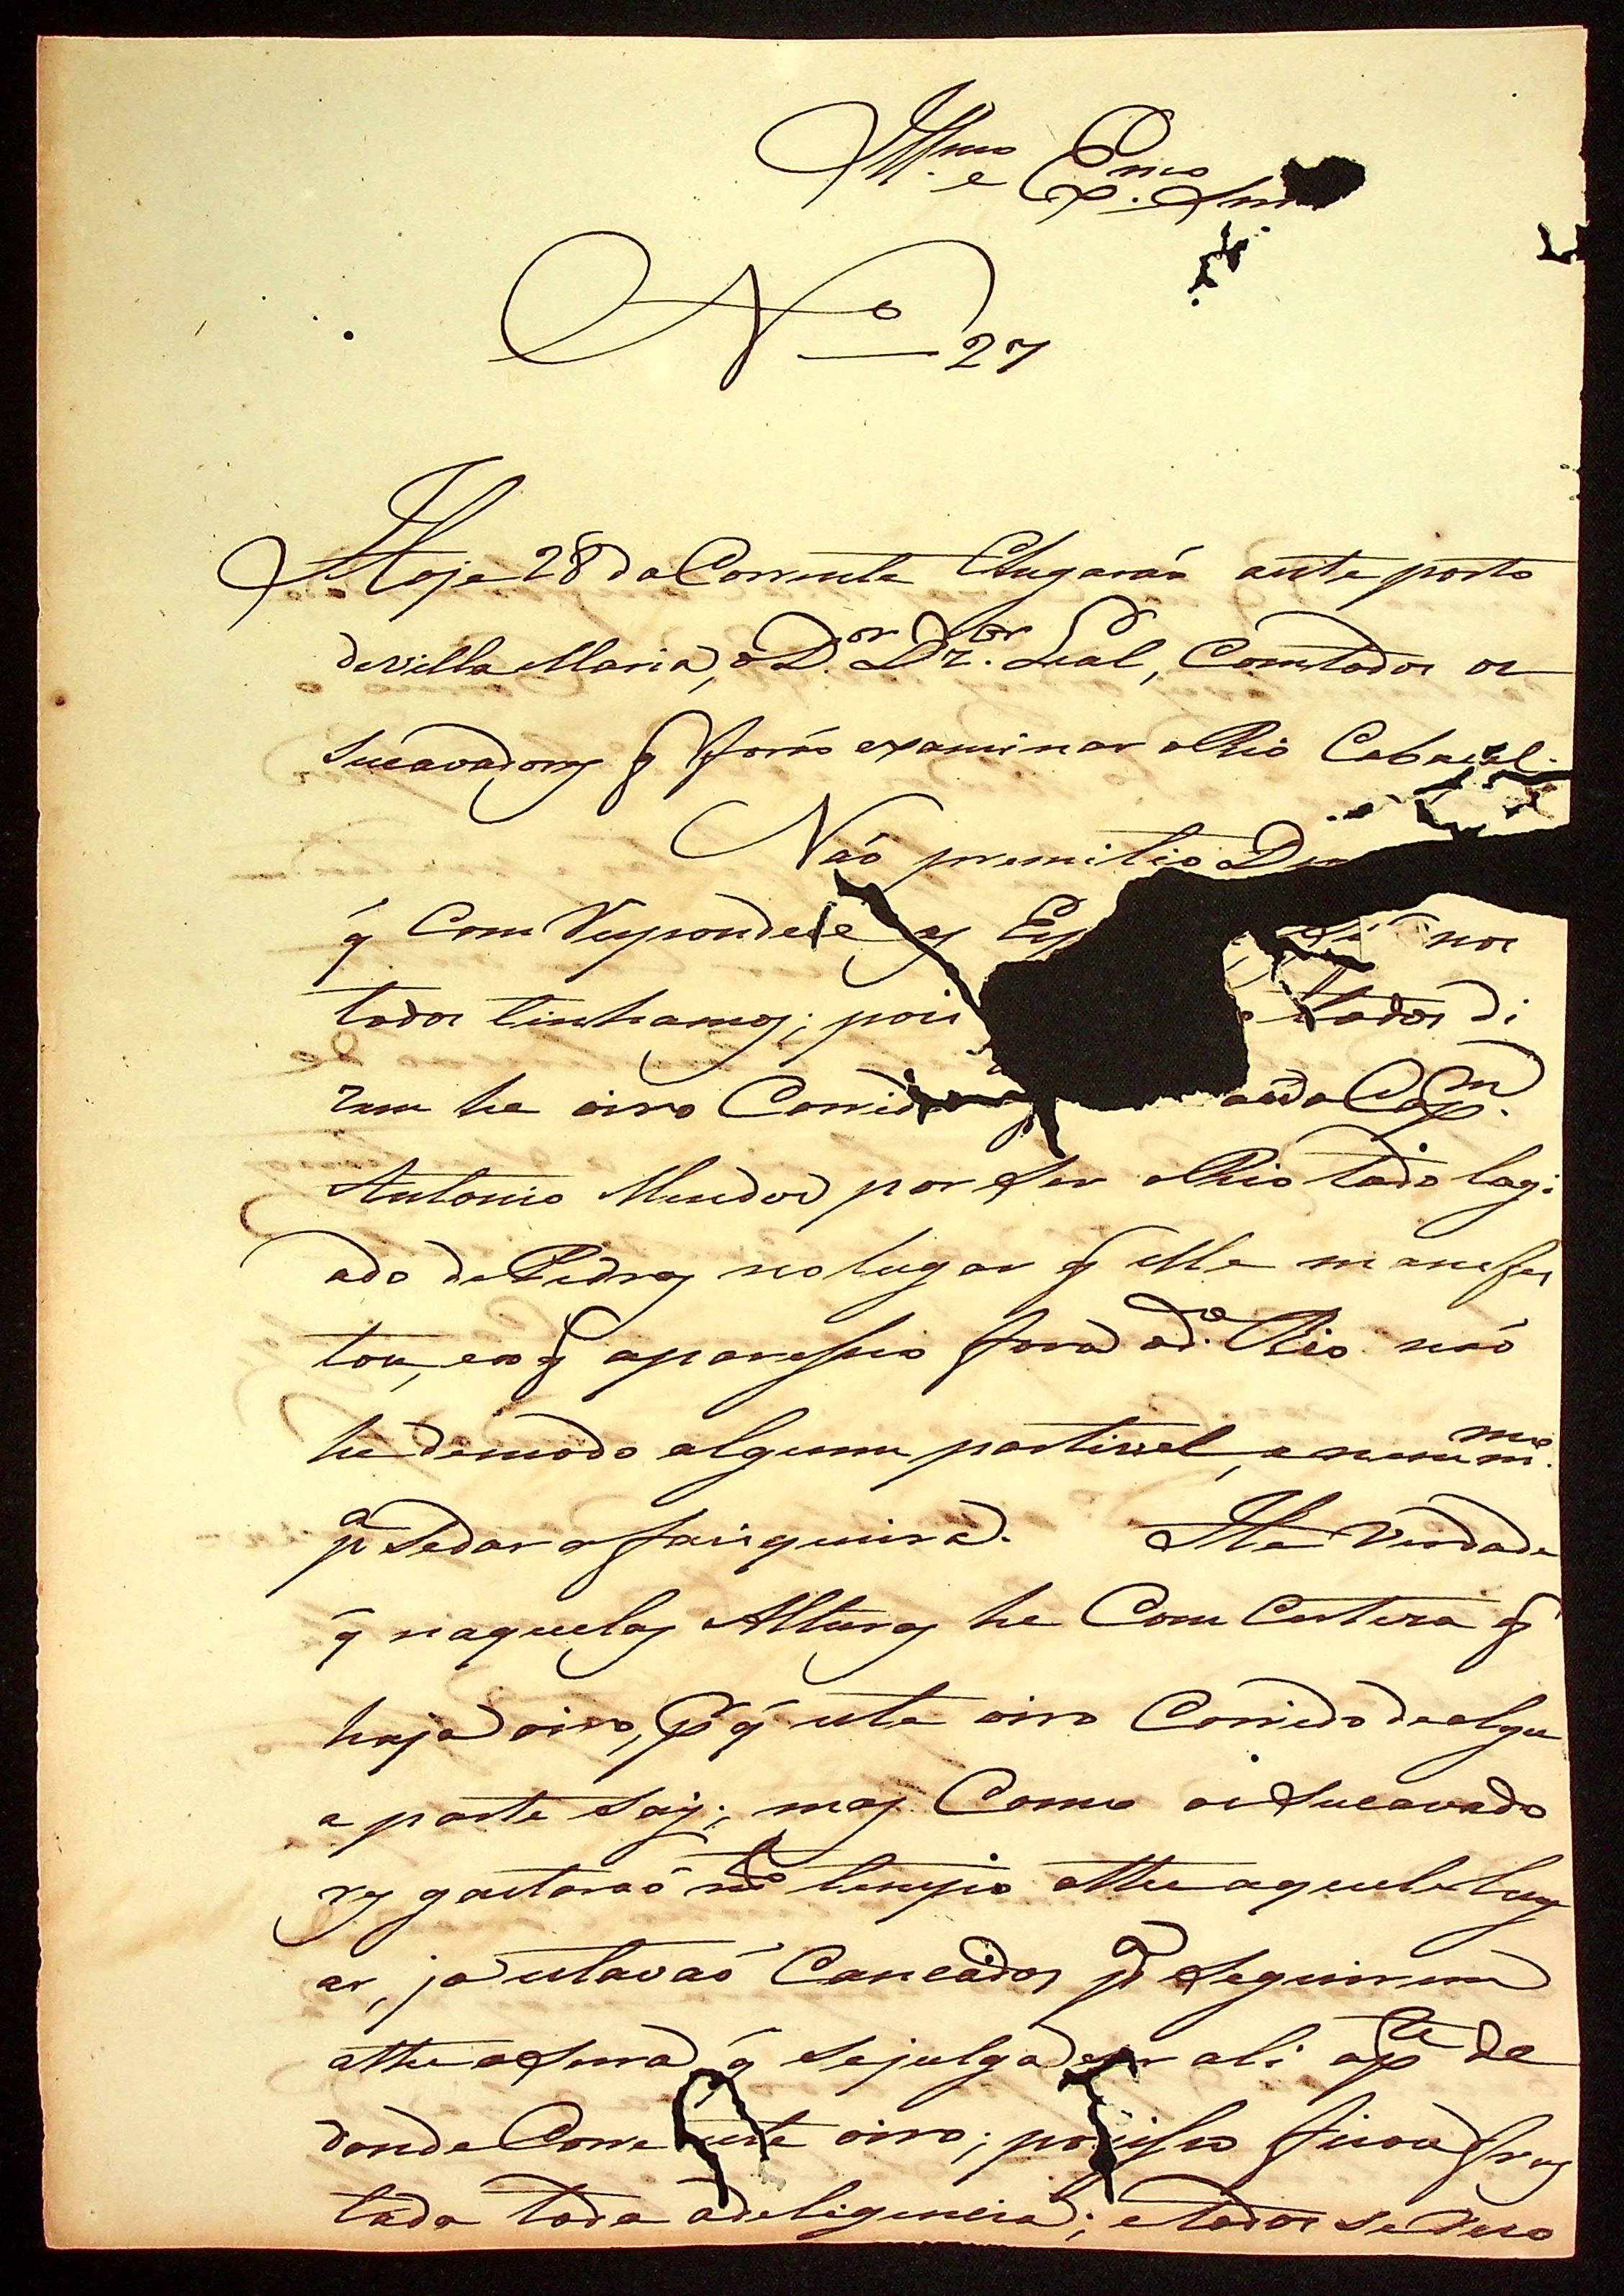 Ill.mo e Ex.mo Snr
N.o 27
Hoje 28 do Corrente Chegarão aeste porto
deVilla Maria, o D.or D.r. Leal, Com todos os
sucavadores q forão examinar o Rio Cabaçal.
Naó premitio D
q Com Respondese as Esp nos
todos tinhamos; pois todos di
zem he oiro Corrido do Cap.m
Antonio Mendes por ser o Rio todo lagi
ado de Pedras no lugar q elle manefes
tou, eo q aparesseo fora do d.o Rio não
he demodo algum partivel, e nem m.mo
p.a sedar a faisqueira. He Verdade
q naquelas Alturas he Com Certeza q
haja oiro, p.r q este oiro Corrido dealgu
a parte say; mas Como os sucavado
res gastaraó m.to tempo athe aquele lug
ar, ja estavaó Cancados p.a seguirem
athe a serra q sejulga ser ali a p.te de
donde Corre este oiro; por isso ficou frus
tada toda adeligencia; e todos se